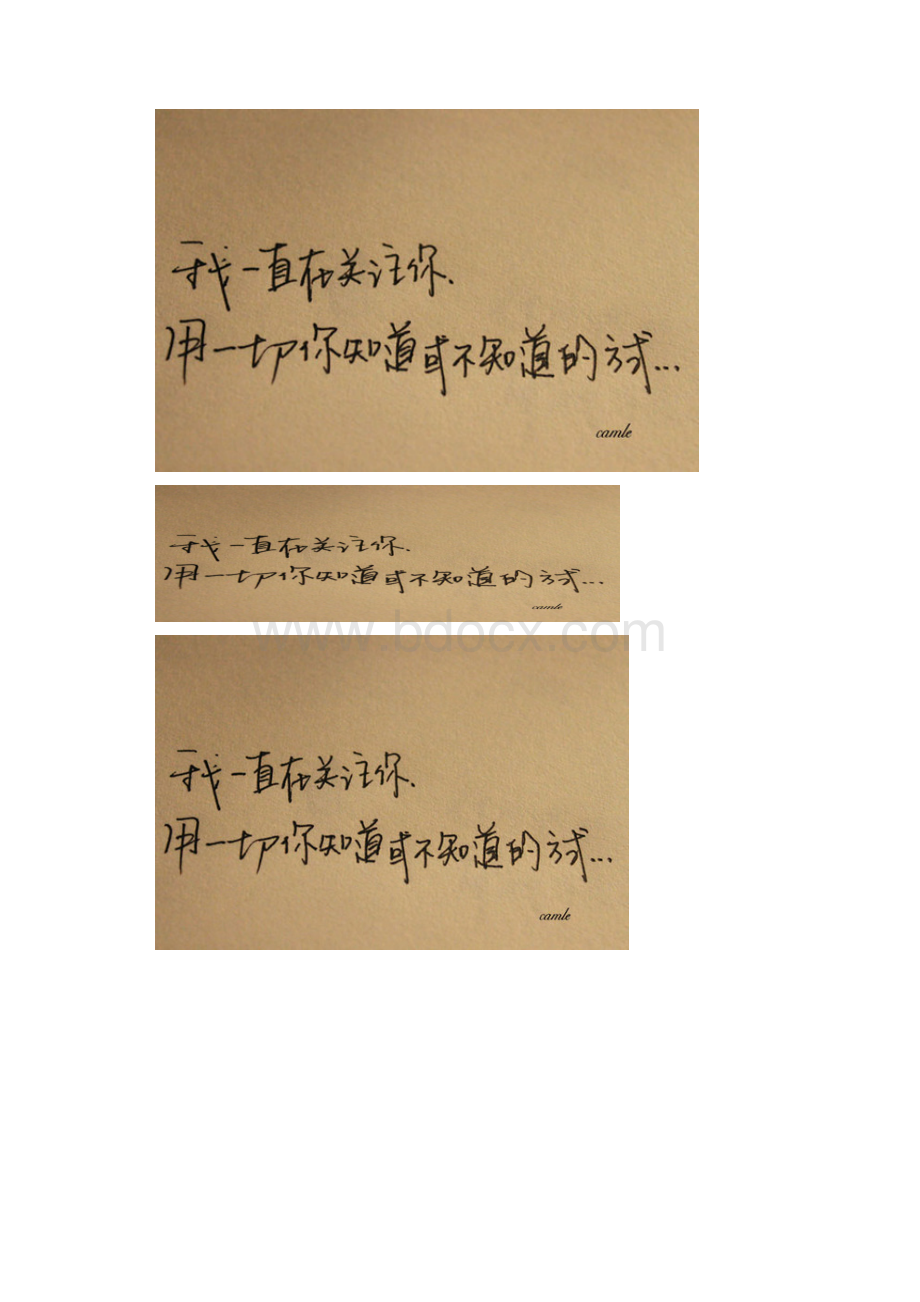 我一直在关注你.
用一切你知道或不知道的方式...
camle
我一直在关注你.
用一切你知道或不知道的方式...
camle
www.bdocx.com
我一直在关注你.
用一切你知道或不知道的方式...
camle